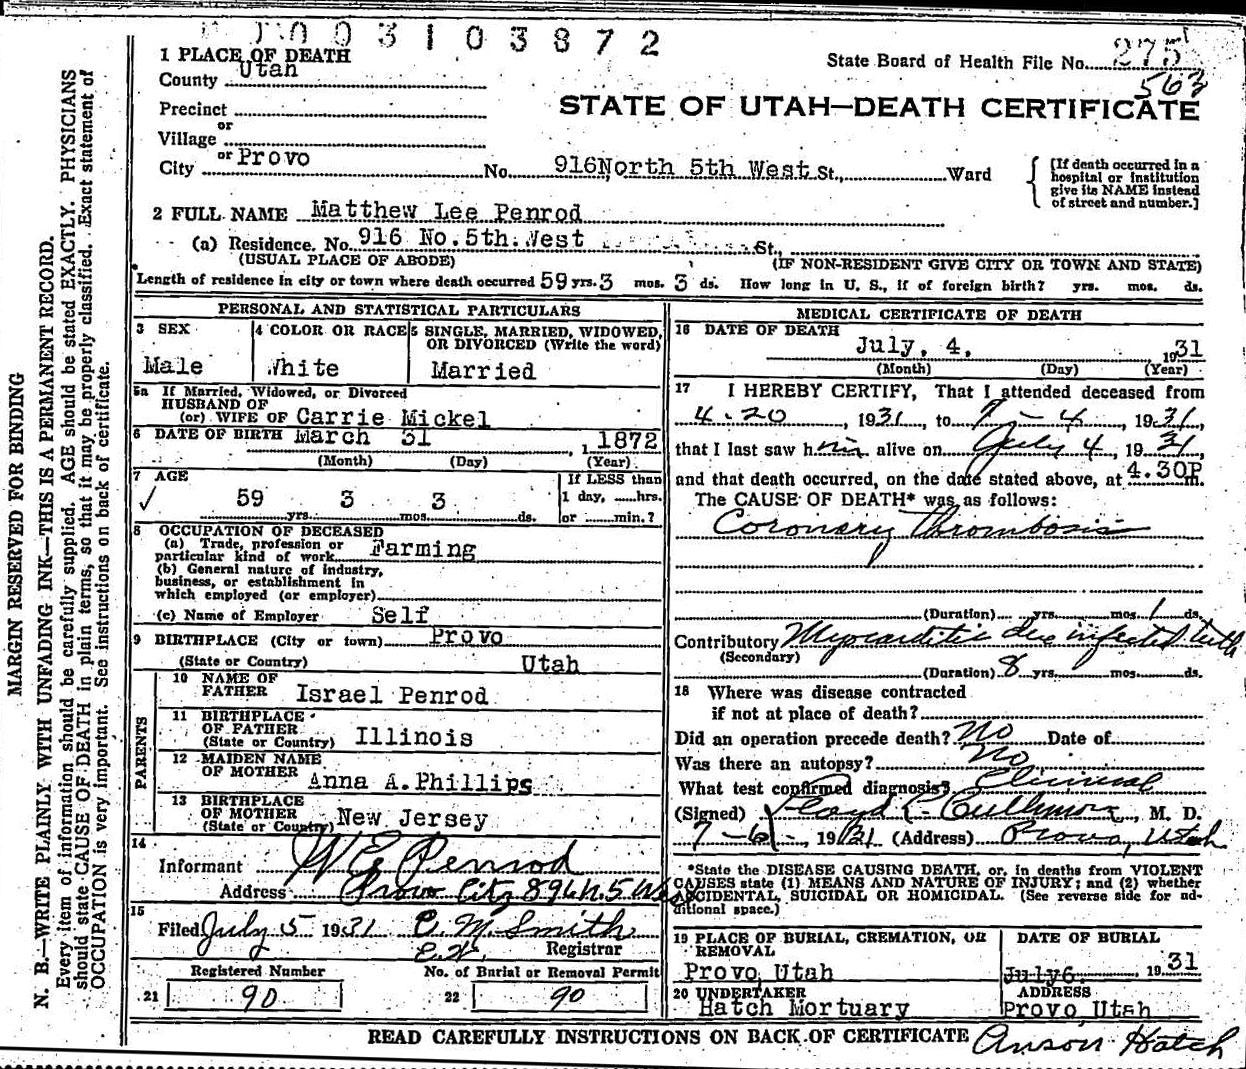 003103872
1 PLACE OF DEATH
County Utah
State Board of Health File No. 275
563
Precinct
STATE OF UTAH—DEATH CERTIFICATE
or
Village
or
City Provo No. 916 North 5th West St., Ward
[If death occurred in a hospital or institution give its NAME instead of street and number.]
2 FULL NAME Matthew Lee Penrod
(a) Residence. No. 916 No. 5th. West St.,
(USUAL PLACE OF ABODE) (IF NON-RESIDENT GIVE CITY OR TOWN AND STATE)
Length of residence in city or town where death occurred 59 yrs. 3 mos. 3 ds. How long in U. S., if of foreign birth? yrs. mos. ds.
PERSONAL AND STATISTICAL PARTICULARS
3 SEX
Male
4 COLOR OR RACE
White
5 SINGLE, MARRIED, WIDOWED, OR DIVORCED (Write the word)
Married
5a If Married, Widowed, or Divorced
HUSBAND OF
(or) WIFE OF Carrie Mickel
6 DATE OF BIRTH March 31, 1872
(Month) (Day) (Year)
7 AGE
59 yrs. 3 mos. 3 ds.
If LESS than
1 day, hrs.
or min.?
8 OCCUPATION OF DECEASED
(a) Trade, profession or
particular kind of work Farming
(b) General nature of industry,
business, or establishment in
which employed (or employer)
(c) Name of Employer Self
9 BIRTHPLACE (City or town) Provo
(State or Country) Utah
PARENTS
10 NAME OF
FATHER Israel Penrod
11 BIRTHPLACE
OF FATHER
(State or Country) Illinois
12 MAIDEN NAME
OF MOTHER Anna A. Phillips
13 BIRTHPLACE
OF MOTHER
(State or Country) New Jersey
14
Informant W E Penrod
Address Provo City 896 N. 5 West
15
Filed July 5 1931 E. M. Smith
Registrar
Registered Number
21 90
No. of Burial or Removal Permit
22 90
MEDICAL CERTIFICATE OF DEATH
16 DATE OF DEATH
July, 4, 1931
(Month) (Day) (Year)
17 I HEREBY CERTIFY, That I attended deceased from
4-20, 1931, to 7-4, 1931,
that I last saw him alive on July 4, 1931,
and that death occurred, on the date stated above, at 4.30P m.
The CAUSE OF DEATH* was as follows:
Coronary Thrombosis
(Duration) yrs. mos. 1 ds.
Contributory Myocarditis due infected teeth
(Secondary)
(Duration) 8 yrs. mos. ds.
18 Where was disease contracted
if not at place of death?
Did an operation precede death? No Date of
Was there an autopsy? No
What test confirmed diagnosis? Clinical
(Signed) Lloyd L. Cullimore, M. D.
7-6-, 1931 (Address) Provo, Utah
*State the DISEASE CAUSING DEATH, or, in deaths from VIOLENT
CAUSES state (1) MEANS AND NATURE OF INJURY; and (2) whether
ACCIDENTAL, SUICIDAL OR HOMICIDAL. (See reverse side for additional space.)
19 PLACE OF BURIAL, CREMATION, OR
REMOVAL
Provo, Utah
DATE OF BURIAL
July 6, 1931
20 UNDERTAKER
Hatch Mortuary
ADDRESS
Provo, Utah
READ CAREFULLY INSTRUCTIONS ON BACK OF CERTIFICATE
Anson Hatch
MARGIN RESERVED FOR BINDING
N. B.—WRITE PLAINLY WITH UNFADING INK—THIS IS A PERMANENT RECORD.
Every item of information should be carefully supplied. AGE should be stated EXACTLY. PHYSICIANS
should state CAUSE OF DEATH in plain terms, so that it may be properly classified. Exact statement of
OCCUPATION is very important. See instructions on back of certificate.